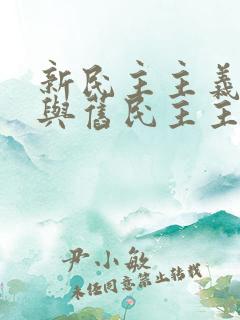 新民主主義
與舊民主主
尹小敏
未經同意禁止轉載